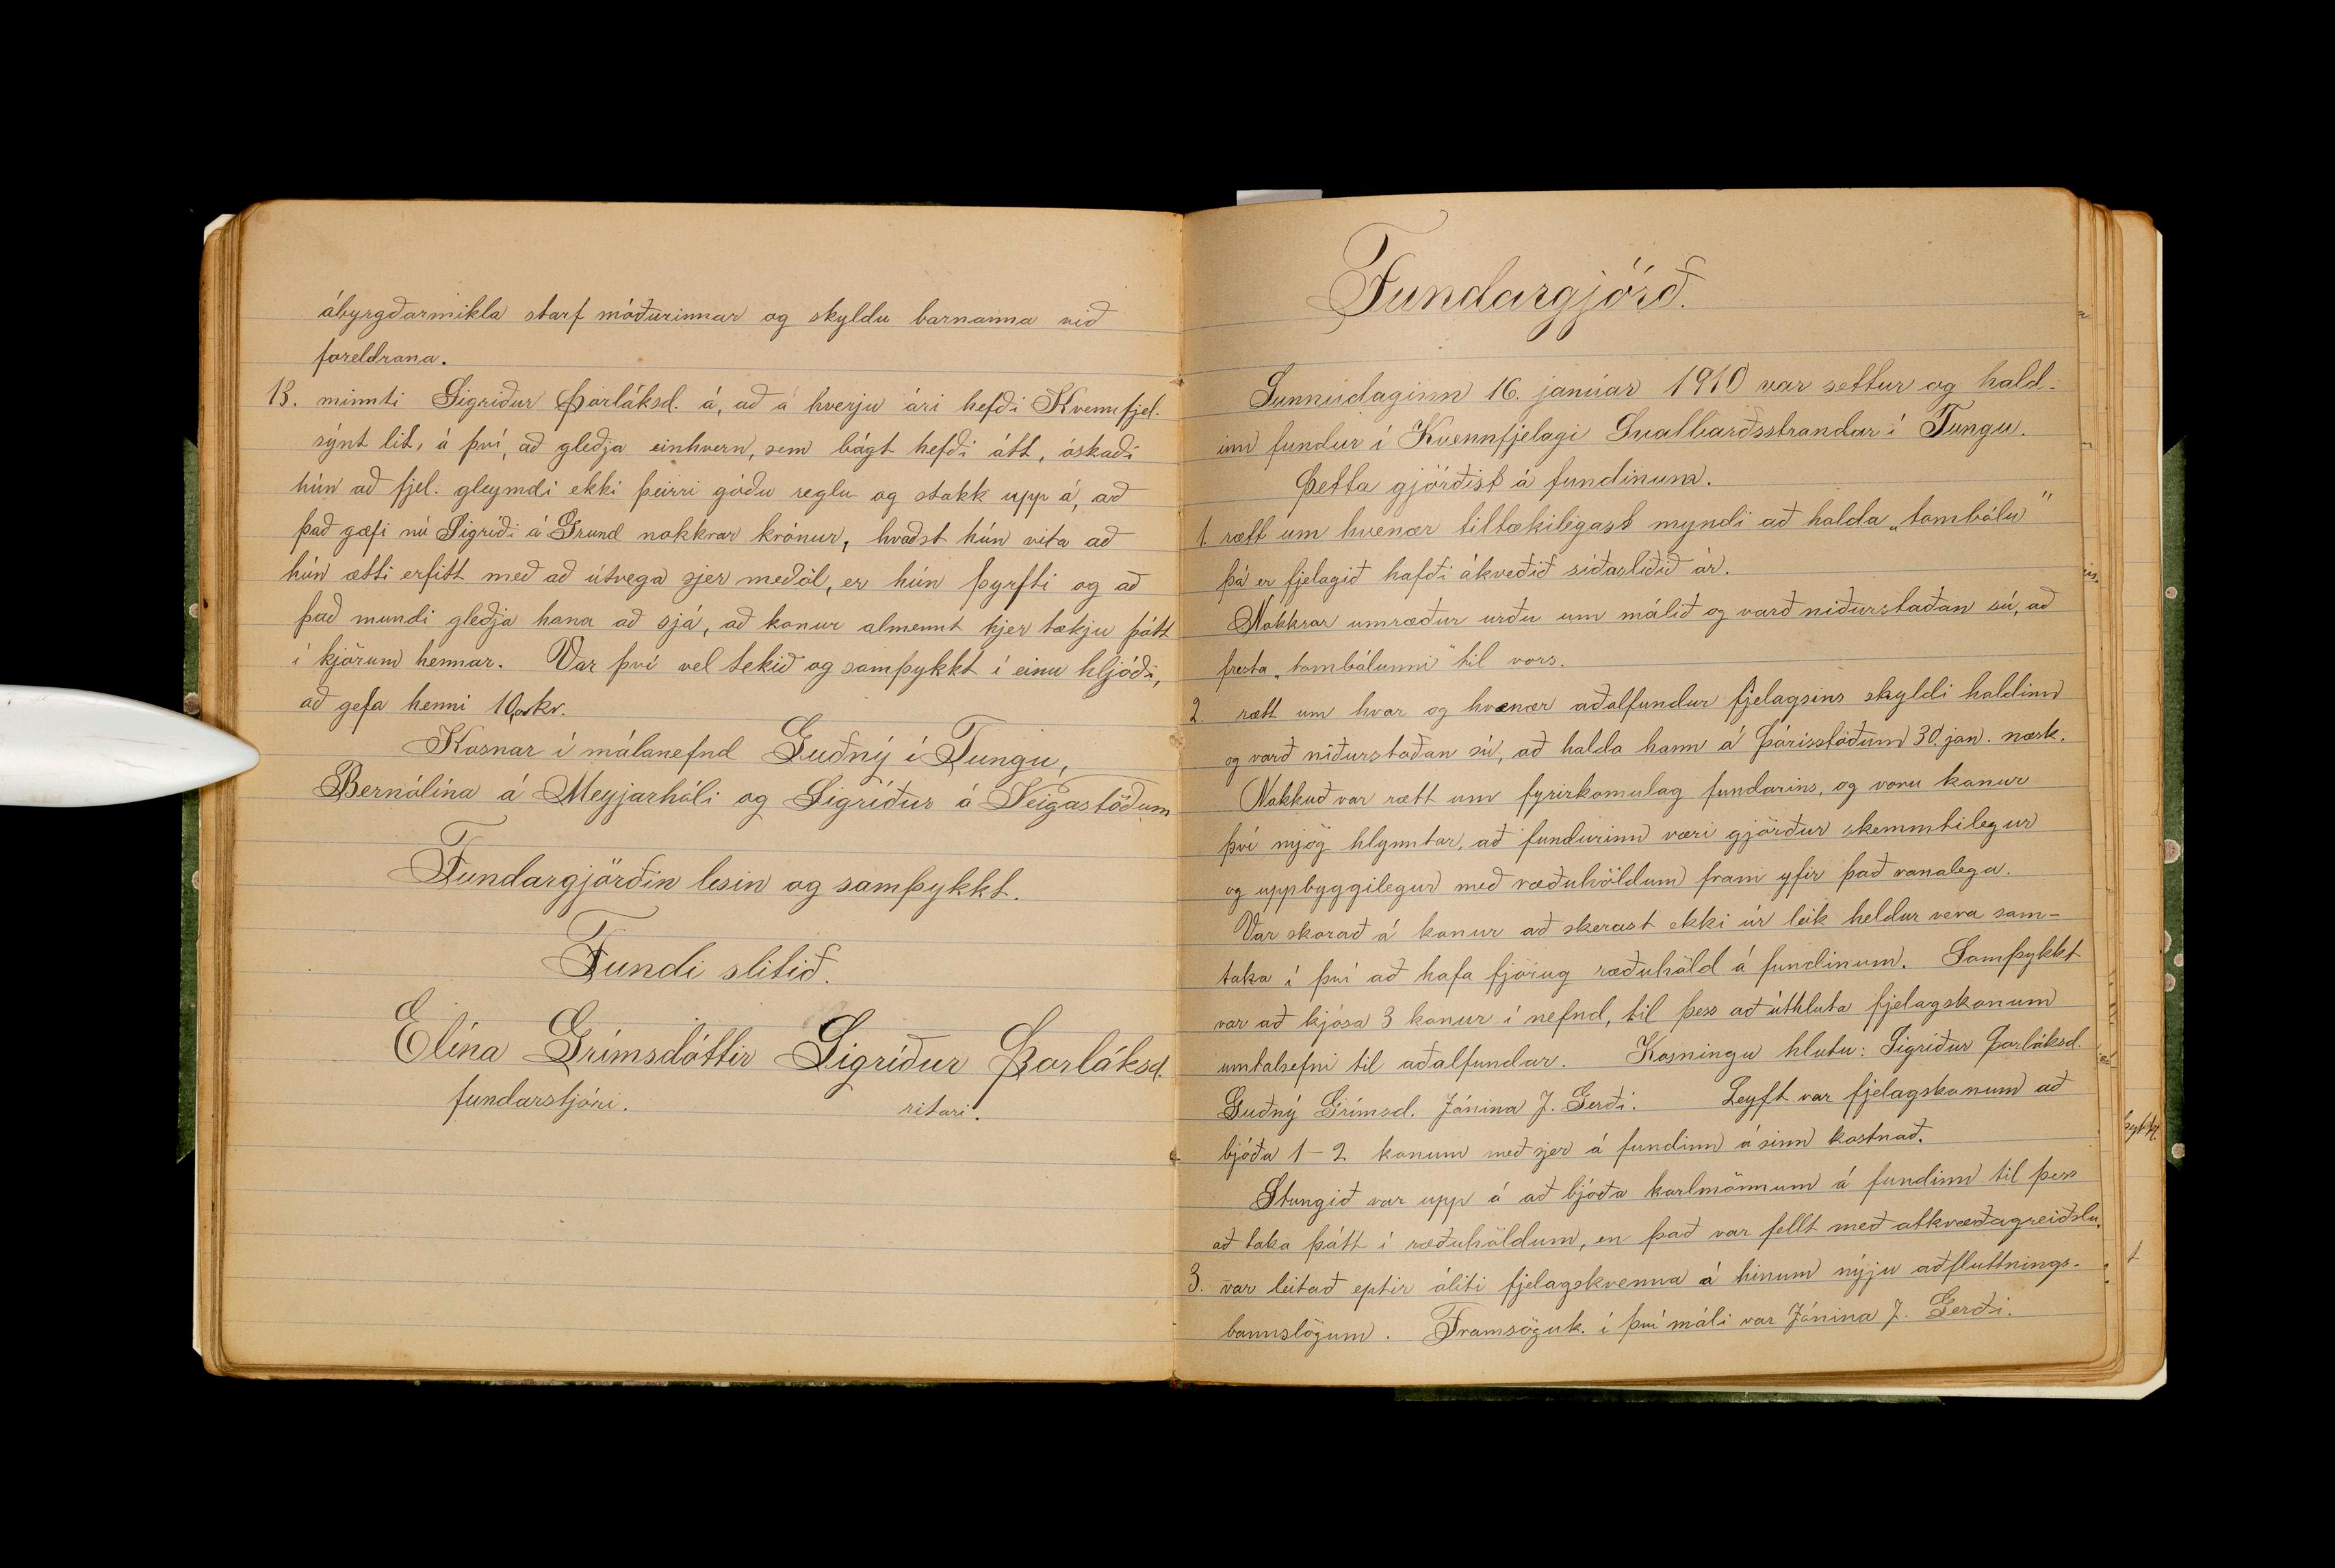 ábyrgðarmikla starf móðurinnar og skyldu barnanna við
foreldrana.
13. minnti Sigríður Þorláksd. á, að á hverju ári hefði Kvennfjel.
sýnt lit, á því, að gleðja einhvern, sem bágt hefði átt, óskaði
hún að fjel. gleymdi ekki þeirri góðu reglu og stakk upp á, að
það gæfi nú Sigríði á Grund nokkrar krónur, kvaðst hún vita að
hún ætti erfitt með að útvega sjer meðöl, er hún þyrfti og að
það mundi gleðja hana að sjá, að konur almennt hjer tækju þátt
í kjörum hennar. Var því vel tekið og samþykkt í einu hljóði,
að gefa henni 10,00 kr.
Kosnar í málanefnd Guðný í Tungu,
Bernólína á Meyjarhóli og Sigríður á Veigastöðum
Fundargjörðin lesin og samþykkt.
Fundi slitið.
Elína Grímsdóttir Sigríður Þorláksd.
fundarstjóri. ritari.
Fundargjörð.
Sunnudaginn 16. janúar 1910 var settur og hald-
inn fundur í Kvennfjelagi Svalbarðsstrandar í Tungu.
Þetta gjörðist á fundinum.
1. rætt um hvenær tiltækilegast myndi að halda „tombólu"
þá er fjelagið hafði ákveðið síðasliðið ár.
Nokkrar umræður urðu um málið og varð niðurstaðan sú, að
fresta „tombólunni" til vors.
2. rætt um hvar og hvenær aðalfundur fjelagsins skyldi haldinn
og varð niðurstaðan sú, að halda hann á Þórisstöðum 30. jan. næsk.
Nokkuð var rætt um fyrirkomulag fundarins, og voru konur
því mjög hlynntar, að fundurinn væri gjörður skemmtilegur
og uppbyggilegur með ræðuhöldum fram yfir það vanalega.
Var skorað á konur að skerast ekki úr leik heldur vera sam-
taka í því að hafa fjörug ræðuhöld á fundinum. Samþykkt
var að kjósa 3 konur í nefnd, til þess að úthluta fjelagskonum
umtalsefni til aðalfundar. Kosningu hlutu: Sigríður Þorláksd.
Guðný Grímsd. Jónína J. Gerði. Leyft var fjelagskonum að
bjóða 1-2 konum með sjer á fundinn á sinn kostnað.
Stungið var upp á að bjóða karlmönnum á fundinn til þess
að taka þátt í ræðuhöldum, en það var fellt með atkvæðagreiðslu.
3. var leitað eptir áliti fjelagskvenna á hinum nýju aðfluttnings-
bannslögum. Framsöguk. í því máli var Jónína J. Gerði.